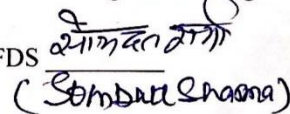 FDS सोमदत्त शर्मा
(Somdutt Sharma)